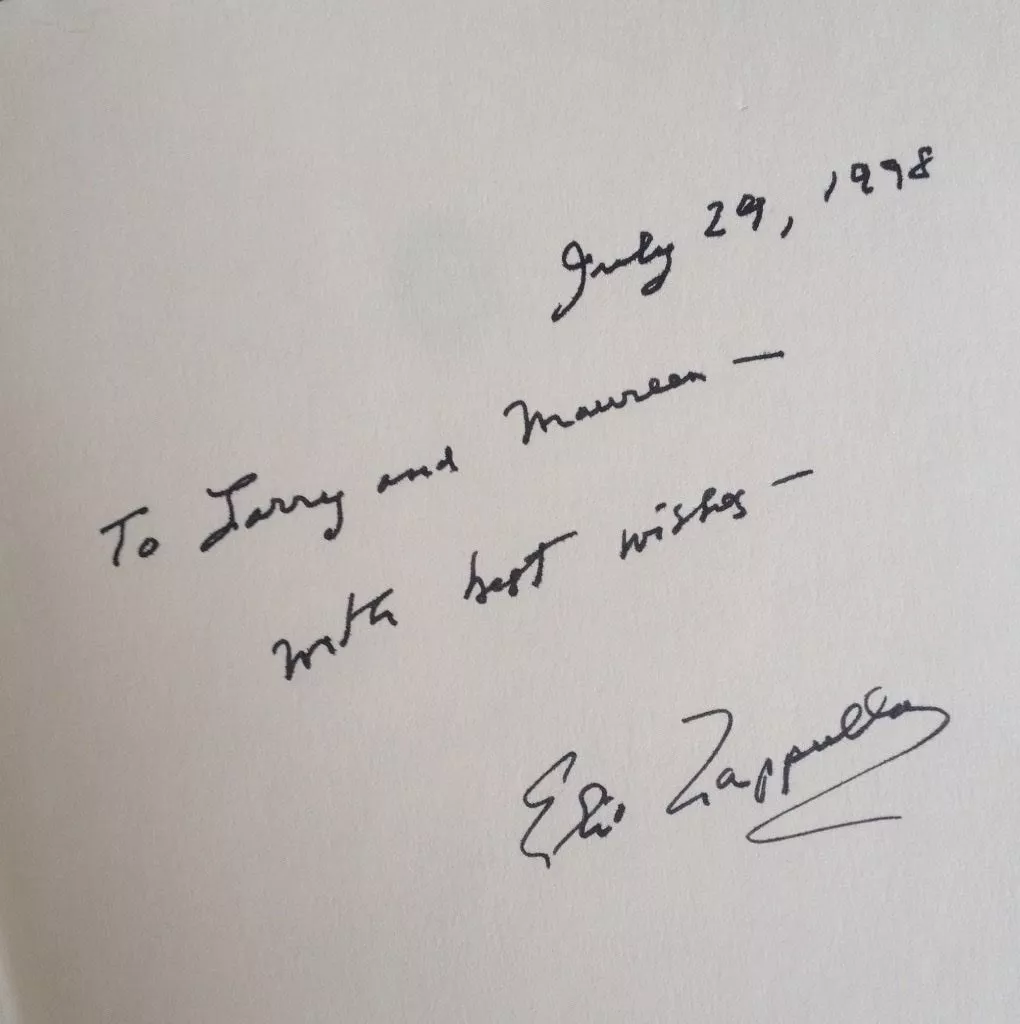 July 29, 1998
To Larry and Maureen —
with best wishes —
Elio Zappulla